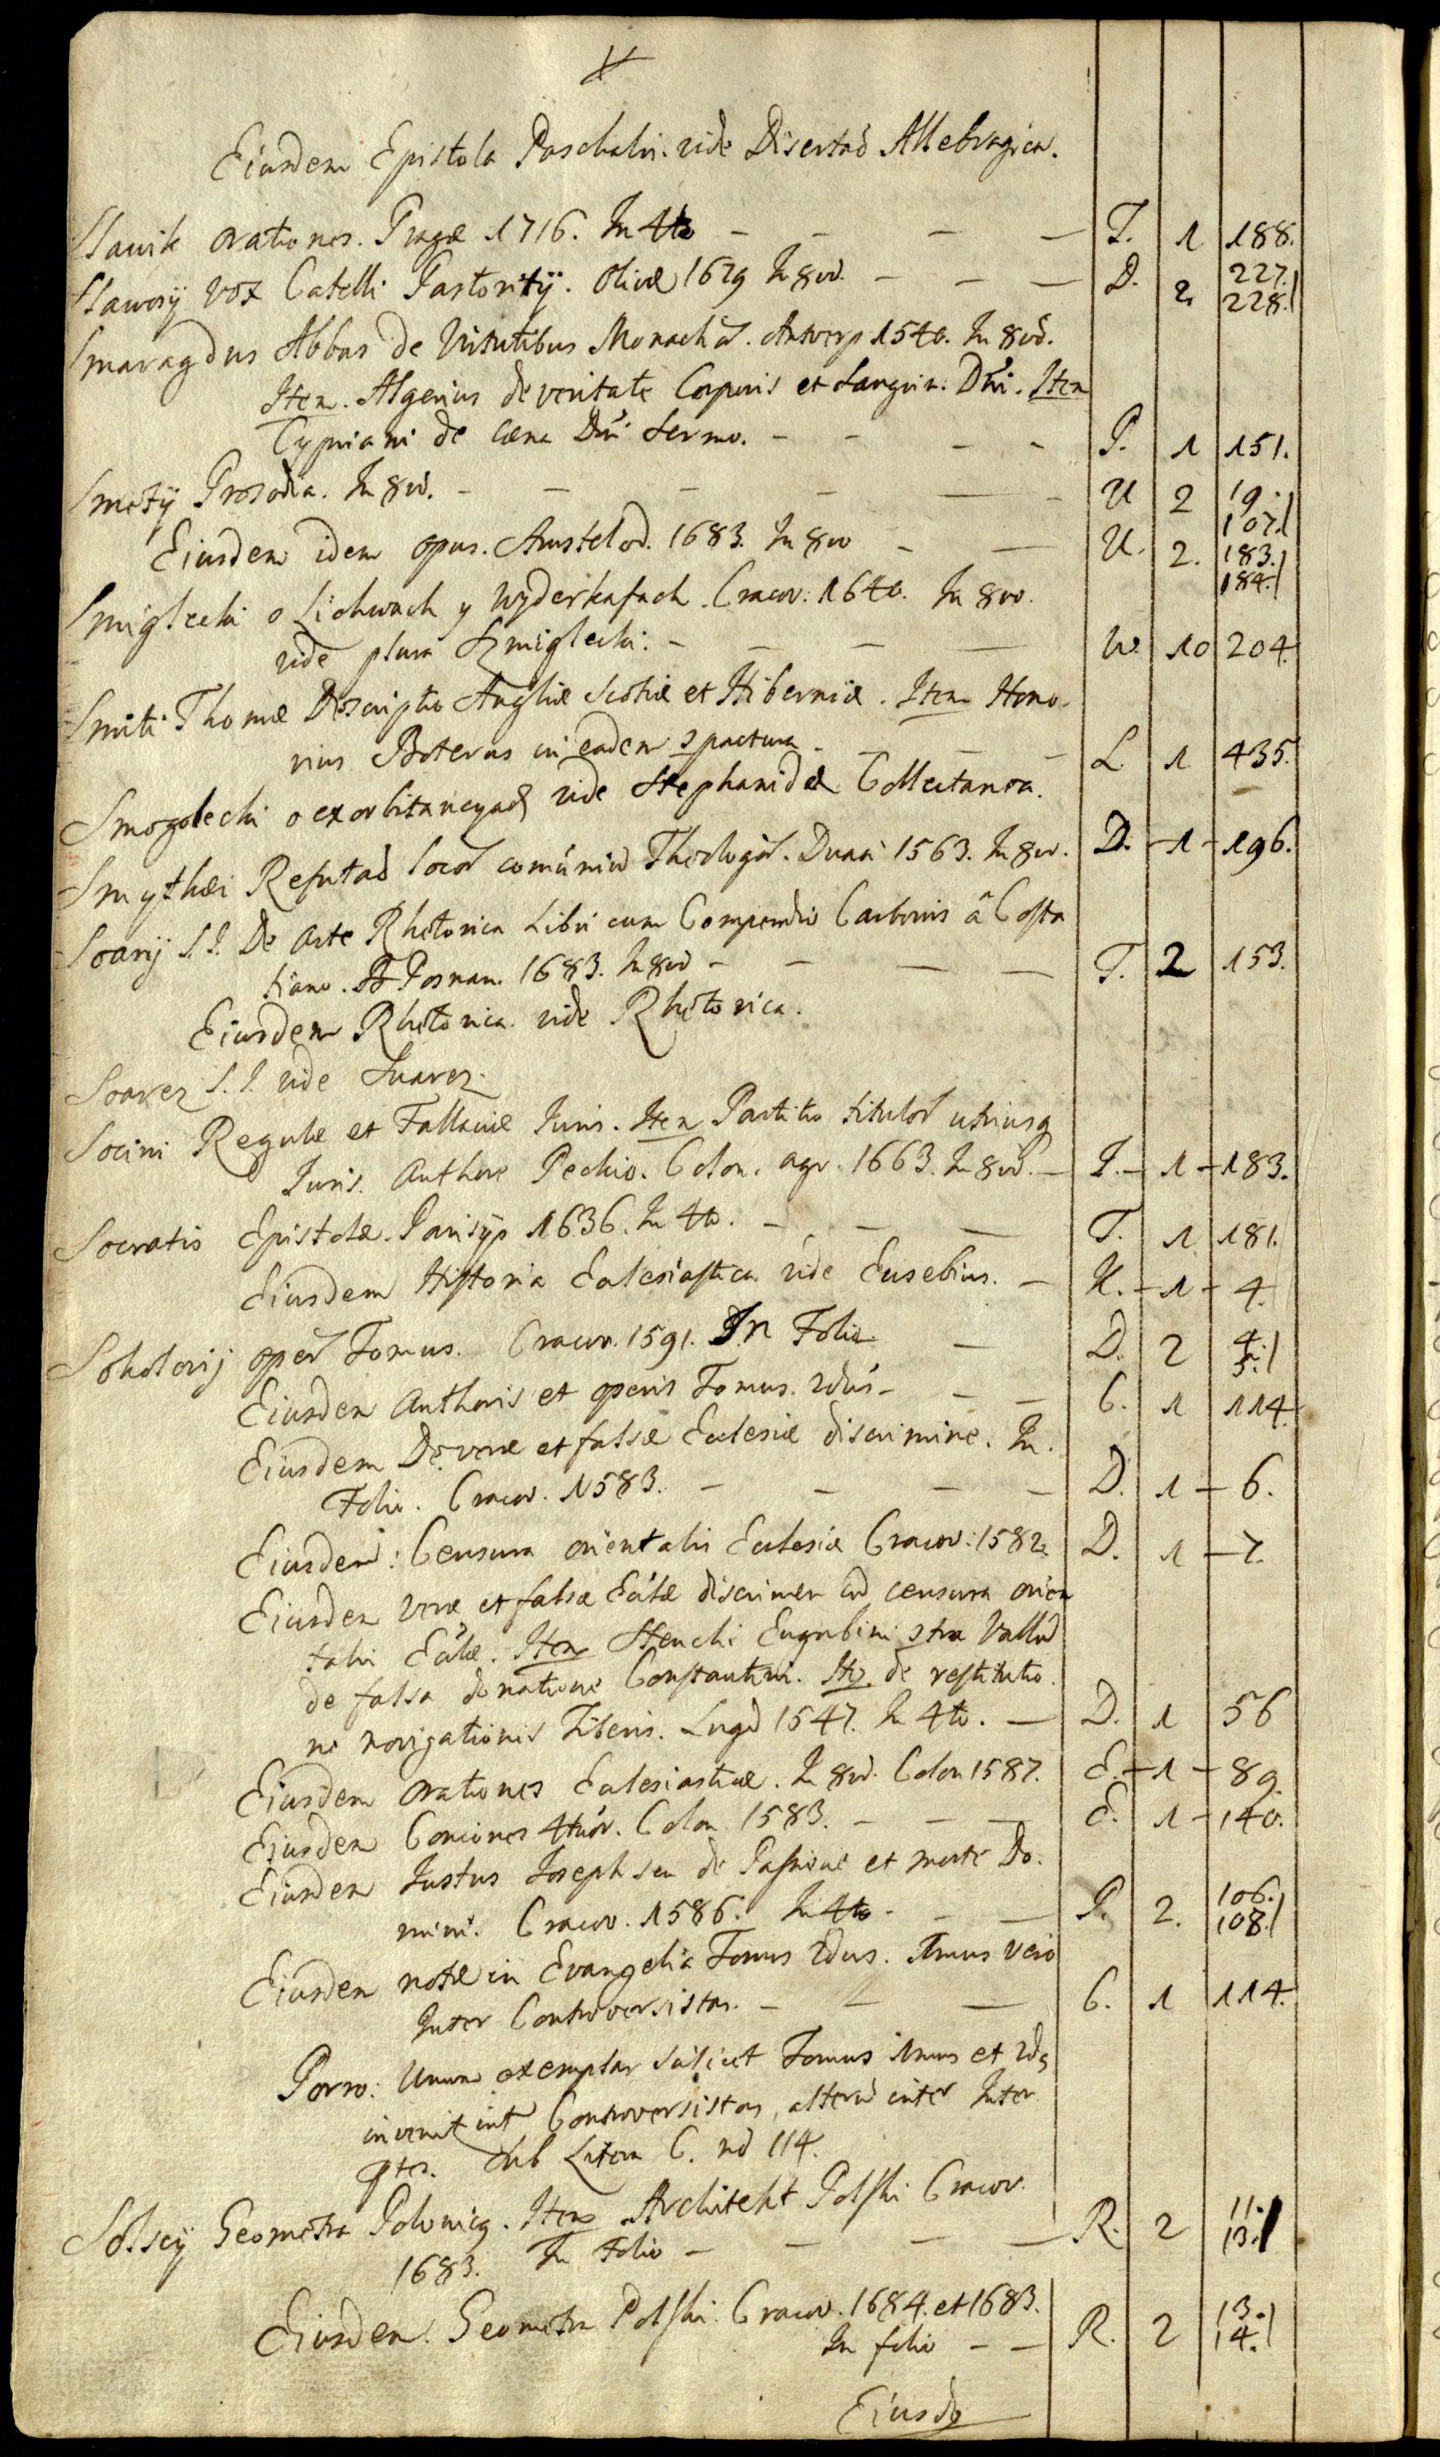 Eiusdem Epistola Paschalis. vide Disertaō Allebragica.
Slawik orationes. Pragæ 1716. In 4to — — — — T. 1 188.
Slawosÿ vox Catelli Pastoritÿ. Olivæ 1679 In 8vō. — — — D. 2. 227. 228.
Smaragdus Abbas de Virtutibus Monachōr. Antverp 1540. In 8vō.
Item. Algerius de veritate Corporis et Sanguin. Dñi. Item
Cypriani de cæna Dñi Sermo. — — — — P. 1 151.
Smetÿ Prosodia. In 8vō. — — — — — — U 2 19. 107.
Eiusdem idem opus. Amstelod. 1683. In 8vo — — U. 2. 183. 184.
Smiglecki o Lichwach y Wyderkafach. Cracov. 1640. In 8vo.
vide plura Szmiglecki. — — — — W. 10 204.
Smiti Thomæ Descriptio Angliæ Scotiæ et Hiberniæ. Item Hono-
rius Boterus in eadem 2pactura — — — — L. 1 435.
Smogolecki o exorbitancyach vide Stephanidæ Collectanea.
Smythæi Refutaō locōr comūniū Theologicōr. Duaci 1563. In 8vo. D. — 1 — 196.
Soarÿ S. I. De Arte Rhetorica Libri cum Compendio Carbonis â Costa
tiano. Posnan. 1683. In 8vō — — — — T. 2 153.
Eiusdem Rhetorica. vide Rhetorica.
Soarez S. I. vide Suarez.
Socini Regulæ et Fallaciæ Iuris. Item Partitio titulōr utriusq
Iuris. Authore Peckio. Colon. agr. 1663. In 8vō. — I. — 1 — 183.
Socratis Epistolæ. Parisÿs 1636. In 4to. — — — T. 1 181.
Eiusdem Historia Eclesiastica vide Eusebius. — K. — 1 — 4.
Sokolovij operū Tomus. Cracov. 1591. In Folio — D. 2 4. 5.
Eiusdem Authoris et operis Tomus 2dus — — — C. 1 114.
Eiusdem De veræ et falsæ Eclesiæ discrimine. In.
Folio. Cracov. 1583. — — — — D. 1 — 6.
Eiusdem: Censura orientalis Eclesiæ Cracov: 1582. D. 1 — 7.
Eiusdem veræ et falsæ Eclæ discrimen cū censura orien
talis Eclæ. Item Steuchi Eugubini 2tra Vallā
de falsa donatione Constantini. It. de restitutio
ne navigationis Tiberis. Lugd 1547. In 4to. — D. 1 56
Eiusdem orationes Eclesiasticæ. In 8vō. Colon 1587. E. — 1 — 89.
Eiusdem Conciones 4tuor. Colon 1583. — — — E. 1 — 140.
Eiusdem Iustus Ioseph seu de Passione et morte Do.
mini. Cracov. 1586. In 4to — — — P. 2. 106. 108.
Eiusdem notæ in Evangelia Tomus 2dus. 1mus vero
Inter Controversistas. — — — C. 1 114.
Porro: Unum exemplar scilicet Tomus 1mus et 2dus
invenit int Controversistas, alterū inter Inter
ptes. Sub Litera C. nō 114.
Solscÿ Geometra Polonicq. Item Architekt Polski Cracov.
1683. In Folio — — — — R. 2 11. 13.
Eiusdem. Geometra Polski. Cracov. 1684. et 1683.
In folio — — R. 2 13. 14.
Eiusde